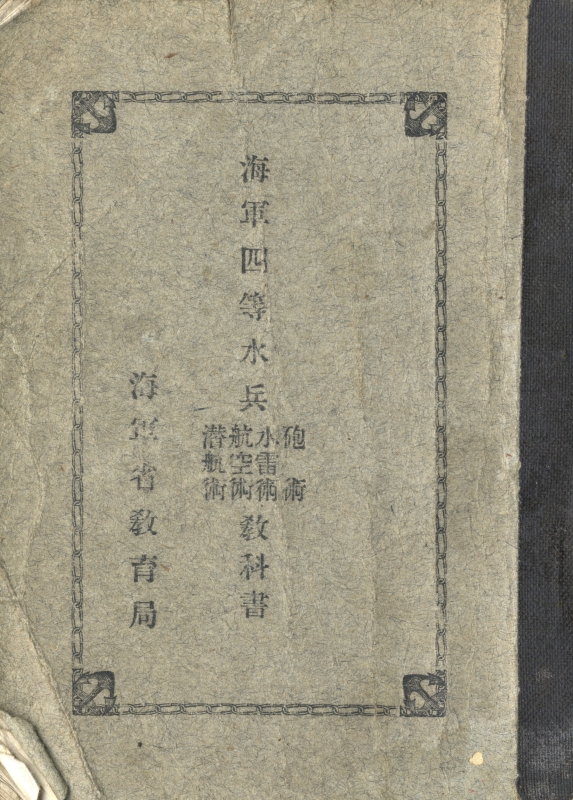 海軍四等水兵
砲術
水雷術
航空術
潜航術
教科書
海軍省教育局